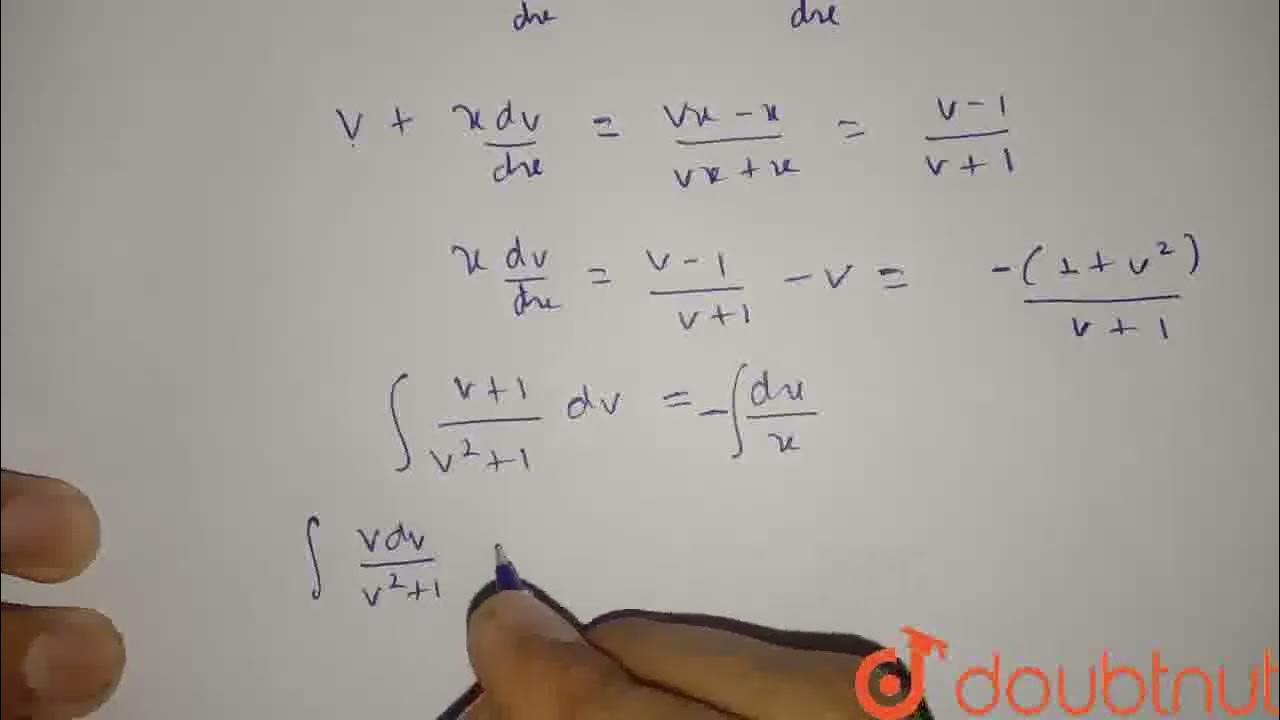 dx dx
v + x dv/dx = (vx - x)/(vx + x) = (v - 1)/(v + 1)
x dv/dx = (v - 1)/(v + 1) - v = -(1 + v²)/(v + 1)
∫ (v + 1)/(v² + 1) dv = -∫ dx/x
∫ v dv/(v² + 1)
doubtnut